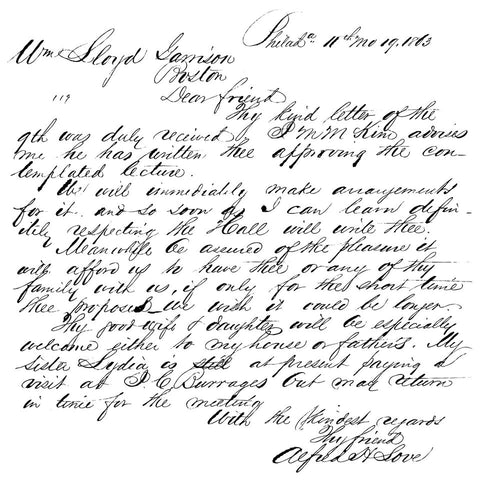 Philada. 11th Mo 19. 1863
Wm Lloyd Garrison
Boston
119
Dear friend
Thy kind letter of the
9th was duly received & J M M Kim advises
me he has written thee approving the con-
templated lecture.
We will immediately make arrangements
for it. and so soon as I can learn defin-
itely respecting the Hall will write thee.
Meanwhile be assured of the pleasure it
will afford us to have thee or any of thy
family with us, if only for the short time
thee proposes we wish it could be longer
Thy good wife & daughter will be especially
welcome either to my house or fathers. My
sister Lydia is still at present paying a
visit at J. C. Burrages but may return
in time for the meeting
With the kindest regards
Thy friend
Alfred H Love